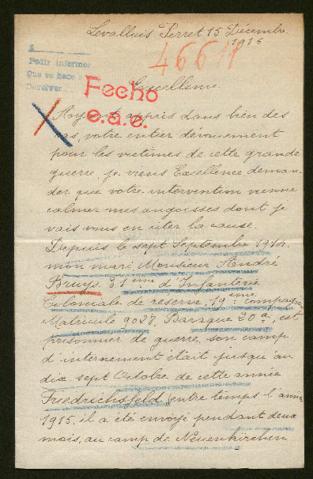 Levallois Perret 15 Décembre
1915
4667
Pedir informes
Que se hace
Devolver
Fecho
e.a.e.
Excellence.
Ayant appris dans bien des
cas, votre entier dévouement
pour les victimes de cette grande
guerre, je viens Excellence deman
der que votre intervention vienne
calmer mes angoisses dont je
vais vous en citer la cause.
Depuis le sept Septembre 1914.
mon mari Monsieur André
Bruys. 31ème d'Infanterie
Coloniale de reserve. 19ème Compagnie
Matricule 9027. Baraque 20a. est
prisonnier de guerre, son camp
d'internement était jusqu'au
dix sept Octobre de cette année
Friedrichsfeld, entre temps l'année
1915, il a été envoyé pendant deux
mois, au camp de Neuenkirchen